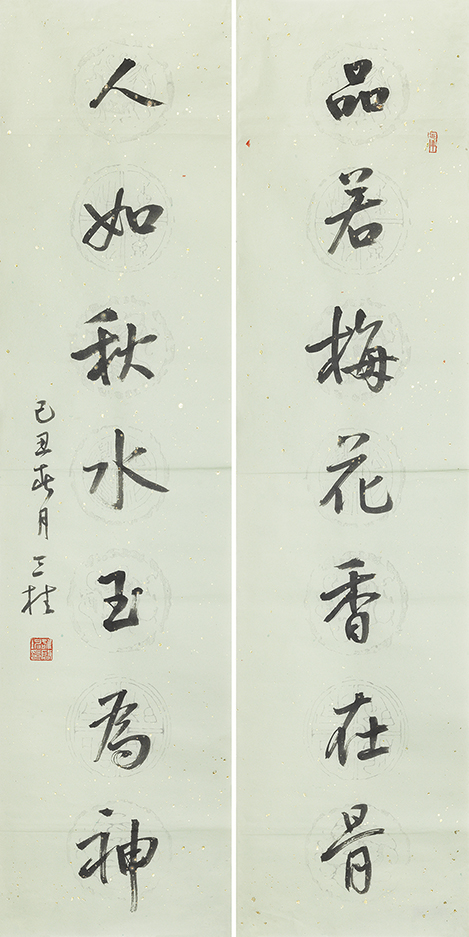 品若梅花香在骨
人如秋水玉為神
己丑春月 三桂